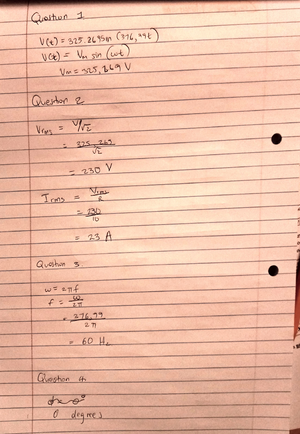 Question 1
V(t) = 325.269 sin (376,99t)
V(t) = Vm sin (ωt)
Vm = 325,269 V
Question 2
Vrms = V/√2
= 325,269/√2
= 230 V
Irms = Vrms/R
= 230/10
= 23 A
Question 3
ω = 2πf
f = ω/2π
= 376,99/2π
= 60 Hz
Question 4
0 degrees